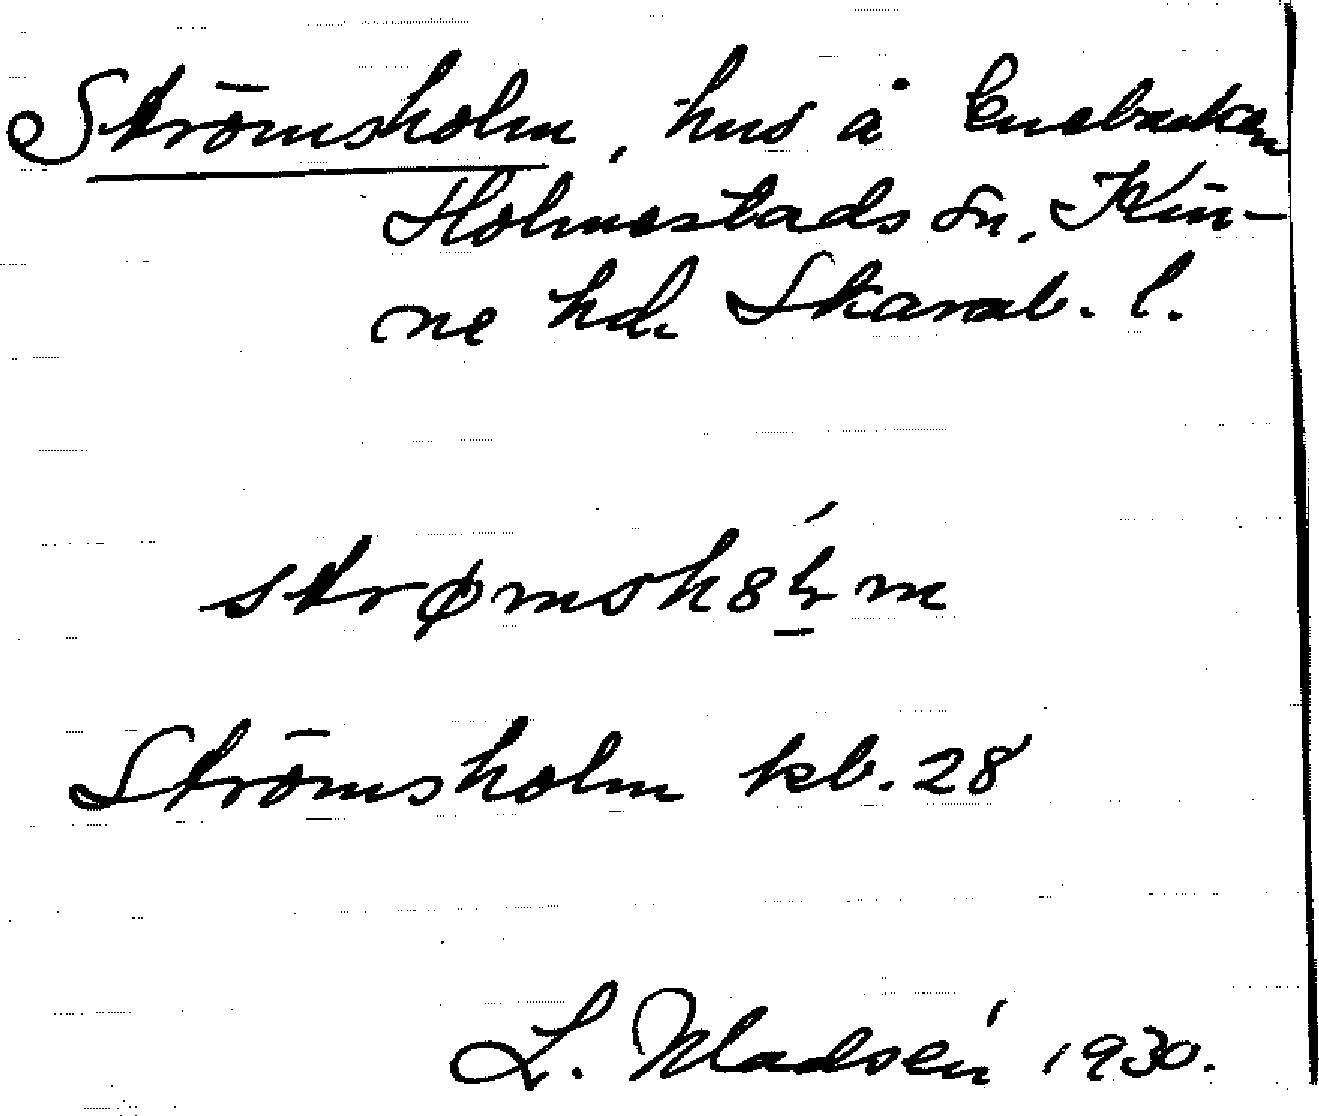 Strömsholm, hus å Enebacken
Holmestads sn. Kin-
ne hd. Skarab. l.
strømsh8ḷm
Strömsholm kb. 28
L. Madsén 1930.